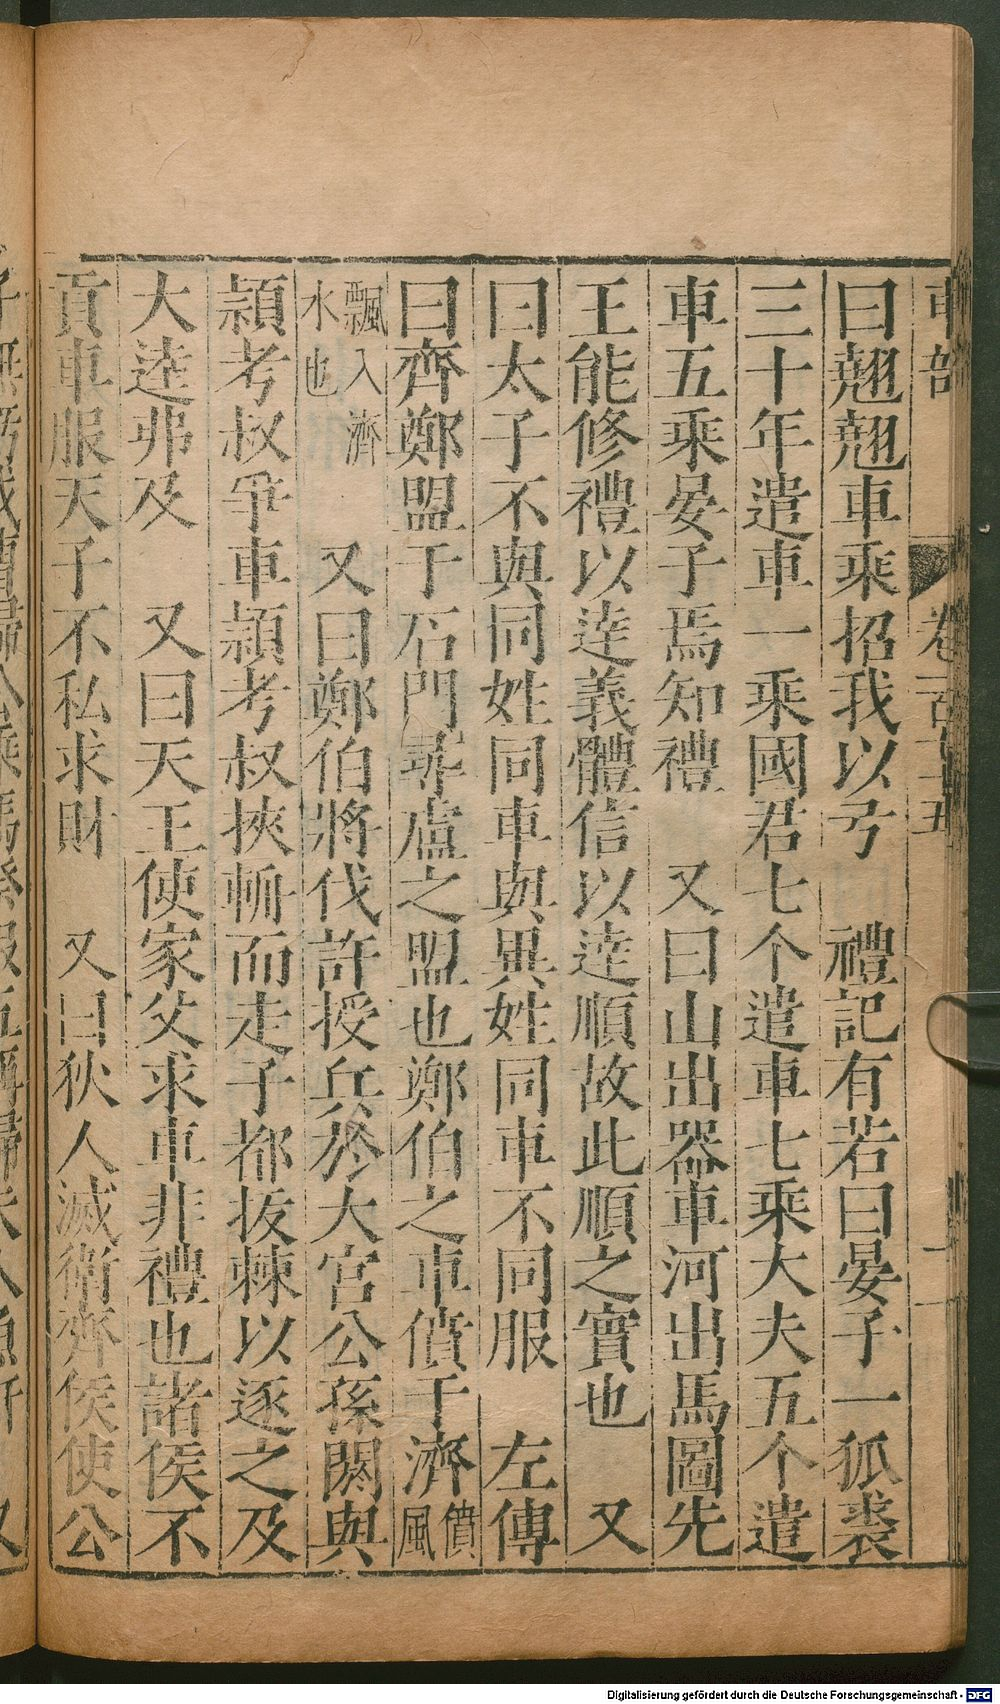 車部 卷一百十五 一
曰翹翹車乘招我以弓 禮記有若曰晏子一狐裘
三十年遣車一乘國君七个遣車七乘大夫五个遣
車五乘晏子焉知禮 又曰山出器車河出馬圖先
王能修禮以逹義體信以逹順故此順之實也 又
曰太子不與同姓同車與異姓同車不同服 左傳
曰齊鄭盟于石門尋盧之盟也鄭伯之車僨于濟僨風
飄入濟水也 又曰鄭伯將伐許授兵於大宮公孫閼與
穎考叔爭車穎考叔挾輈而走子都拔棘以逐之及
大逵弗及 又曰天王使家父求車非禮也諸侯不
貢車服天子不私求財 又曰狄人滅衛齊侯使公
Digitalisierung gefördert durch die Deutsche Forschungsgemeinschaft - DFG